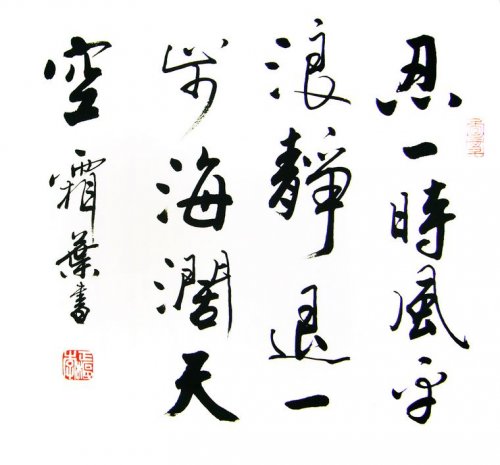 忍一時風平
浪靜退一
步海濶天
空
霜葉書